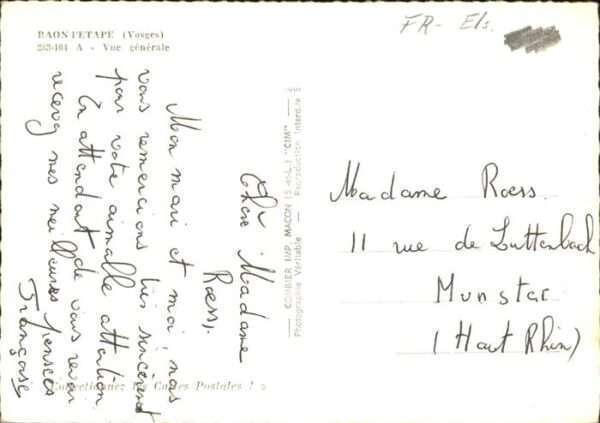 RAON L'ETAPE (Vosges)
283-104 A - Vue générale
FR- Els.
Chère Madame
Roess.
Mon mari et moi, nous
vous remercions très sincèrement
pour votre aimable attention
En attendant de vous revoir
recevez mes meilleures pensées
Françoise
Collectionnez les Cartes Postales !
COMBIER IMP. MACON (S.-&-L.) "CIM"
Photographie Véritable - Reproduction Interdite
Madame Roess.
11 rue de Luttenbach
Munster
(Haut Rhin)